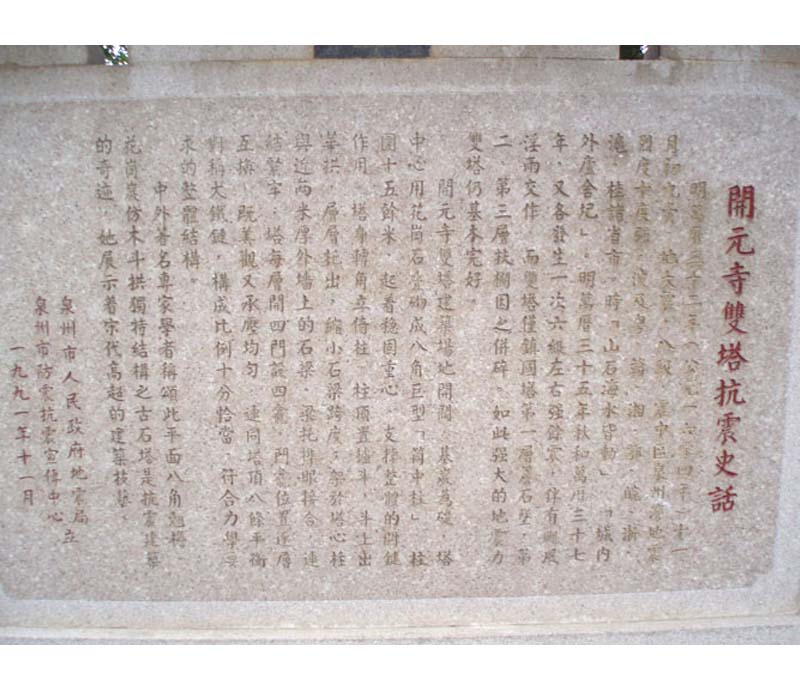 開元寺雙塔抗震史話
明萬曆三十二年(公元一六零四年)十一
月初九夜 地大震 八級 震中區泉州海地震
烈度十度 波及 湘 皖 浙
桂諸省市。時「山石海水皆動」「城內
外廬舍圮」。明萬曆三十五年秋和萬曆三十七
年,又各發生一次六級左右強餘震,伴有颶風
淫雨交作 而雙塔僅鎮國塔第一層蓋石墜,第
二、第三層扶欄因之併碎。如此強大的地震力
雙塔仍基本完好。
開元寺雙塔建築場地開闊,基巖為礎,塔
中心用花崗石壘砌成八角巨型「筒中柱」 柱
圍十五餘米,起着穩固重心,支撐整體的關鍵
作用。塔身轉角立倚柱,柱頂置櫨斗,斗上出
華拱,層層托出,縮小石梁跨度,架於塔心柱
與近兩米厚外墻上的石梁,梁托榫眼接合,連
結緊牢,塔每層開四門設四龕,門龕位置逐層
互換,既美觀又承壓均勻 連同塔頂八條平衡
對稱大鐵鏈,構成比例十分恰當,符合力學要
求的整體結構。
中外著名專家學者稱頌此平面八角
花崗巖仿木斗拱獨特結構之古石塔是抗震建築
的奇迹,她展示着宋代高超的建築技藝。
泉州市人民政府地震局立
泉州市防震抗震宣傳中心
一九九一年十一月